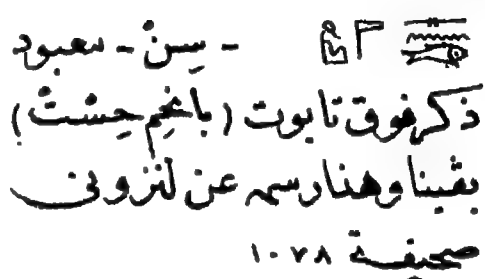 - سِنْ - معبود
ذكر فوق تابوت (بانحِم حِسْتْ)
بڤينا وهنا رسمه عن لنزونى
صحيفة ١٠٧٨